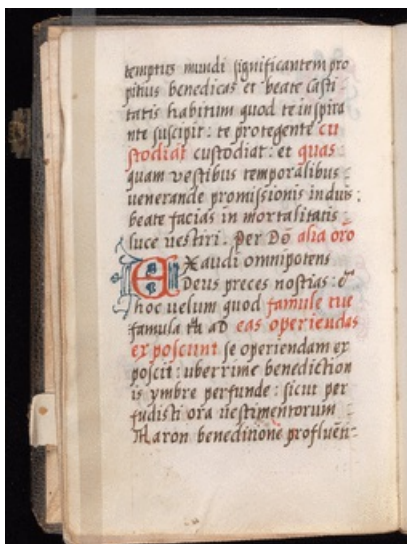 temptus mundi significantem pro
pitius benedicas et beate casti-
tatis habitum quod te inspira
nte suscipit: te protegente cu
stodiat custodiat: et quas
quam vestibus temporalibus
venerande promissionis induis:
beate facias in mortalitatis
luce vestiri. Per Dō alia orō
EXaudi omnipotens
Deus preces nostias:
hoc velum quod famule tue
famula ad eas operiendas
exposcunt se operiendam ex
poscit: uberrime benediction
is ymbre perfunde: sicut per
fudisti ora vestimentorum
Aaron beneditione profluēn-